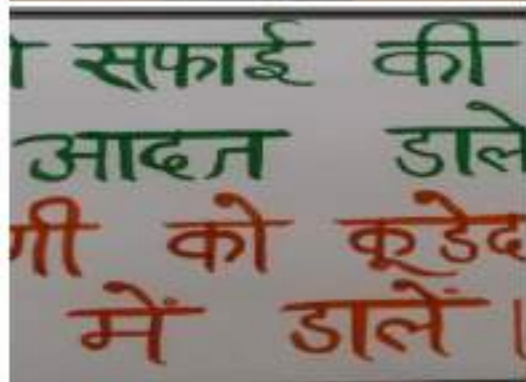 सफाई की
आदत डाले
गी को कूडेद
में डालें ।